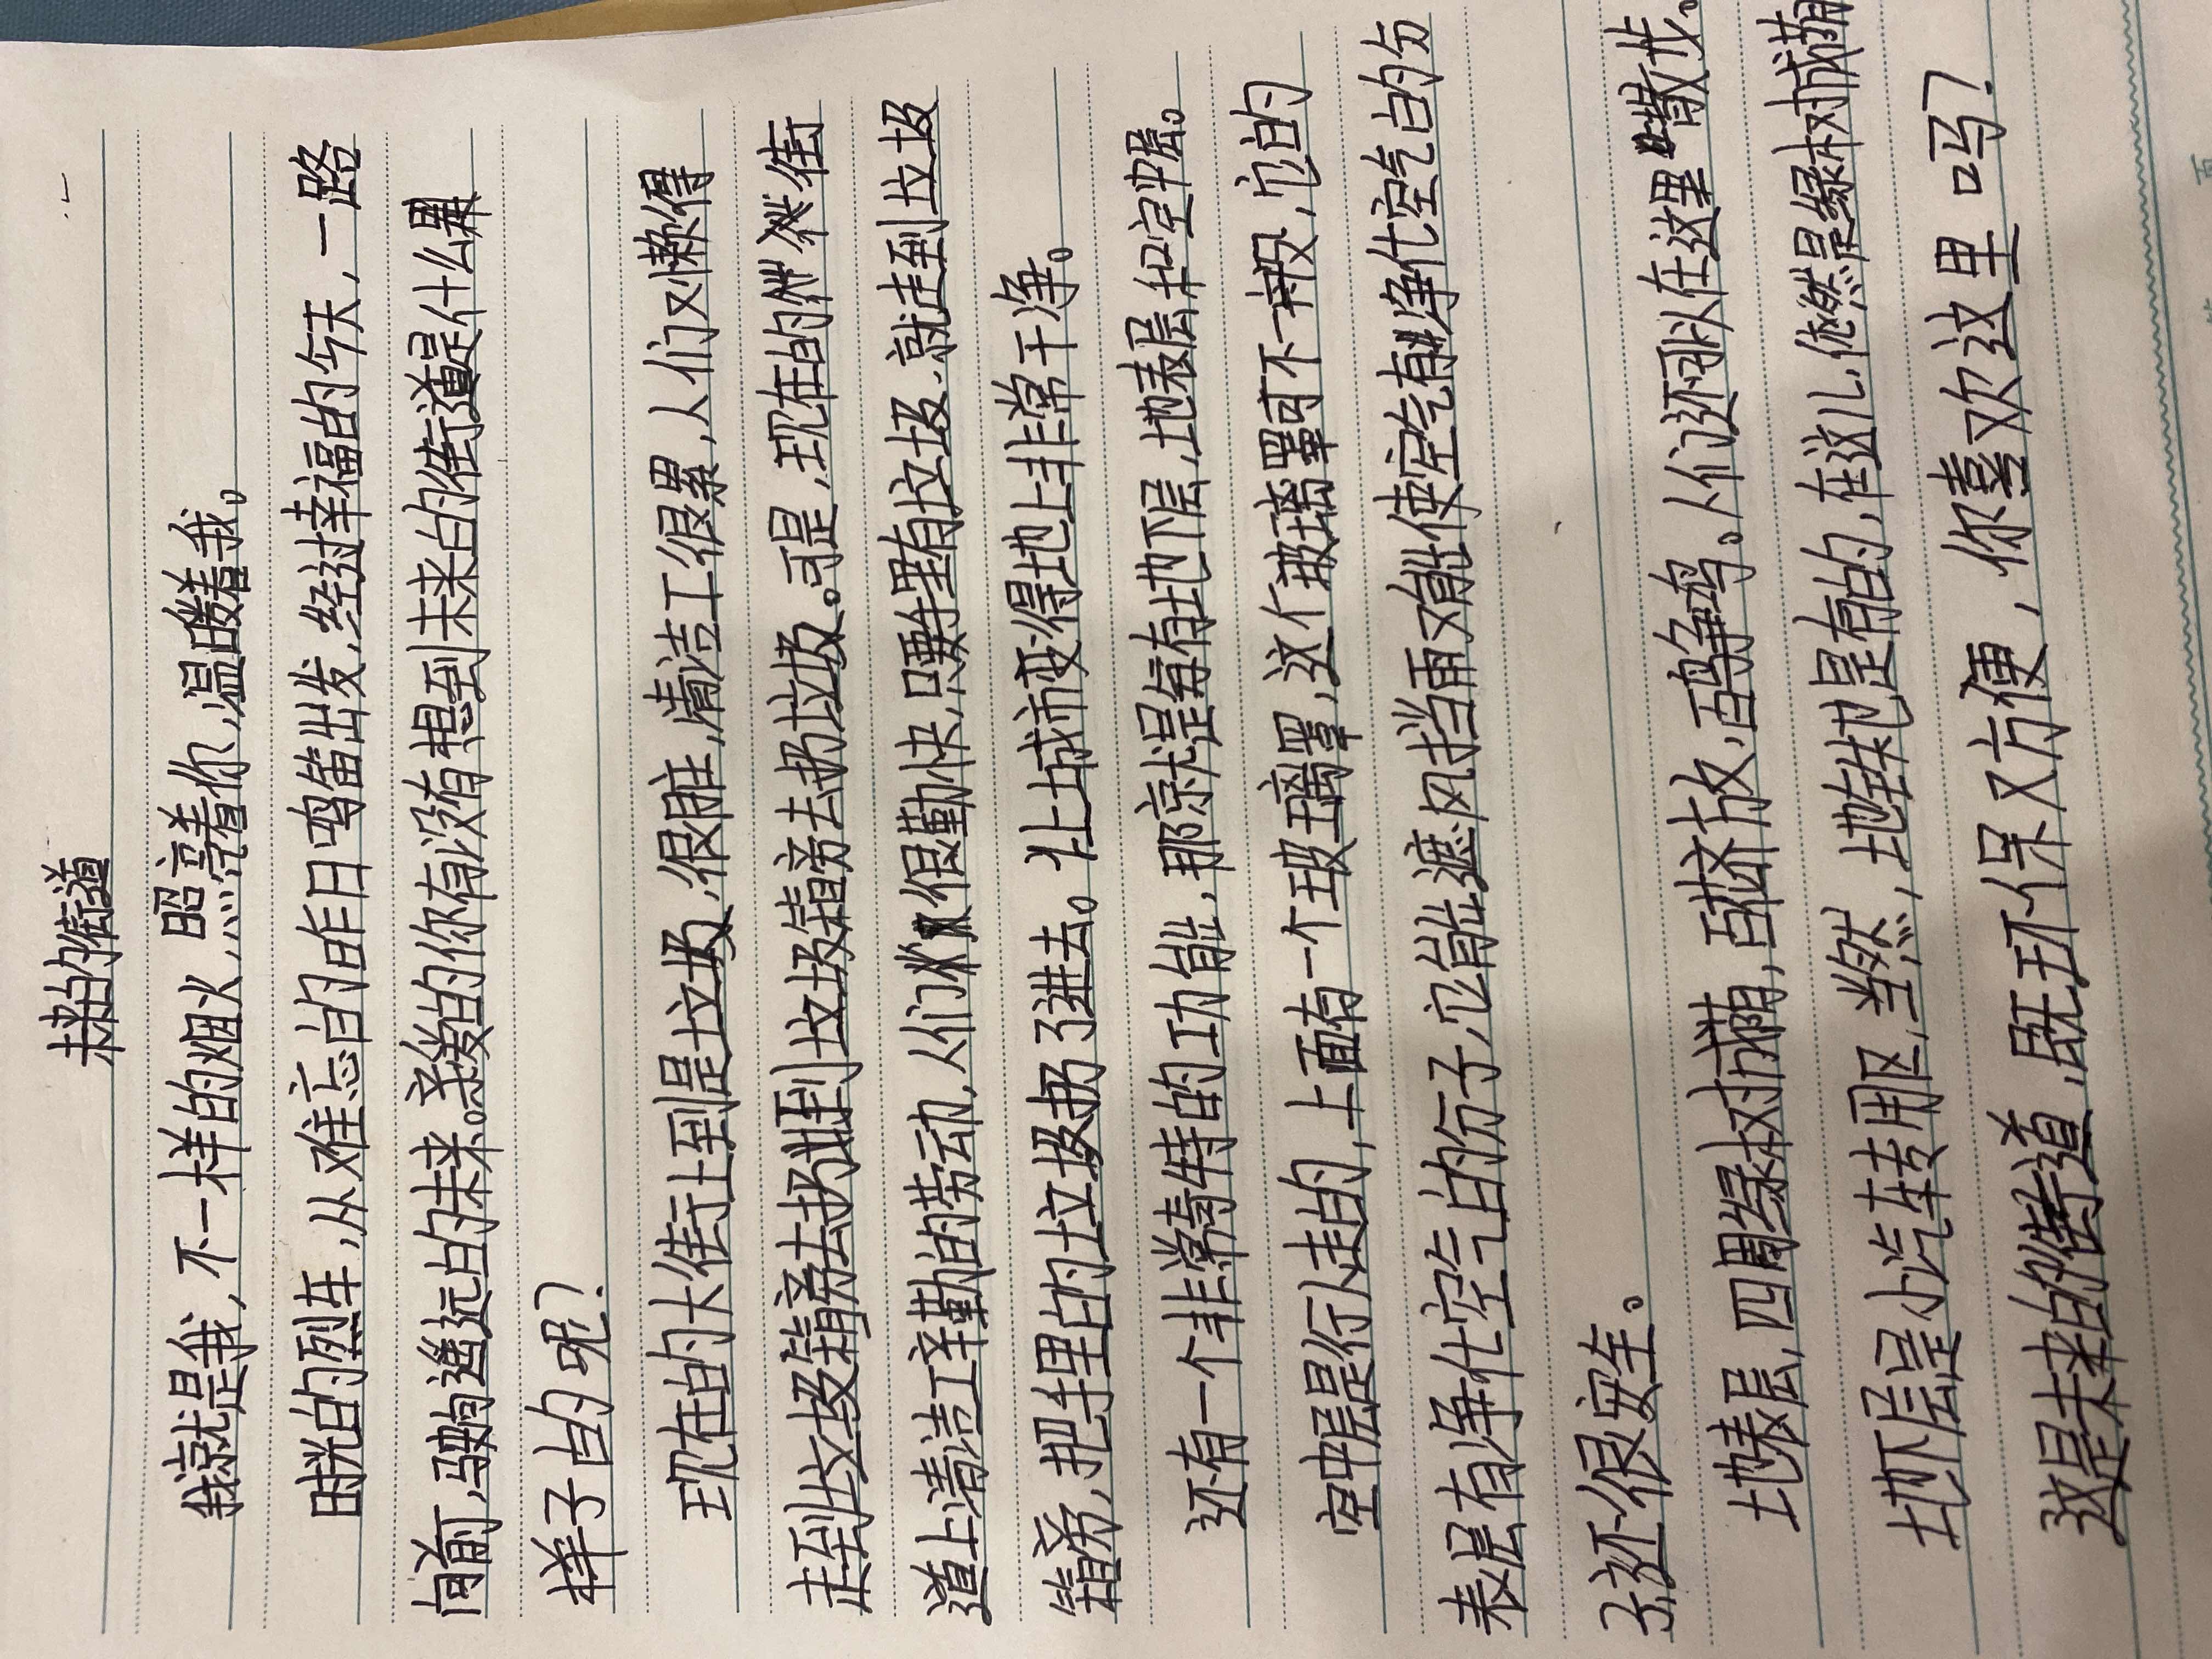 未来的街道
我就是我，不一样的烟火，照亮着你，温暖着我。
时光的列车，从难忘的昨日鸣笛出发，经过幸福的今天，一路
向前，驶向遥远的未来。亲爱的你有没有想到未来的街道是什么
样子的呢？
现在的大街上到是垃圾，很脏，清洁工很累，人们又懒得
走到垃圾箱旁去扔到垃圾箱旁去扔垃圾。可是，现在的街
道上清洁工辛勤的劳动，人们很勤快，只要手里有垃圾，就走到垃圾
箱旁，把手里的垃圾扔了进去。让城市变得地上非常干净。
还有一个非常奇特的功能，那就是有地下层，地表层和空中层。
空中层是行人走的，上面有一个玻璃罩，这个玻璃罩可不一般，它的
表层有净化空气的分子，它能遮风挡雨又能使空气有净化空气的分
子，还很安全。
地表层，四周绿树成荫，百花齐放，百鸟争鸣。人们还可以在这里散步。
地下层是小汽车专用区，当然，地铁也是有的，在这儿，依然是绿树成荫
这是未来的街道，既环保又方便，你喜欢这里吗？